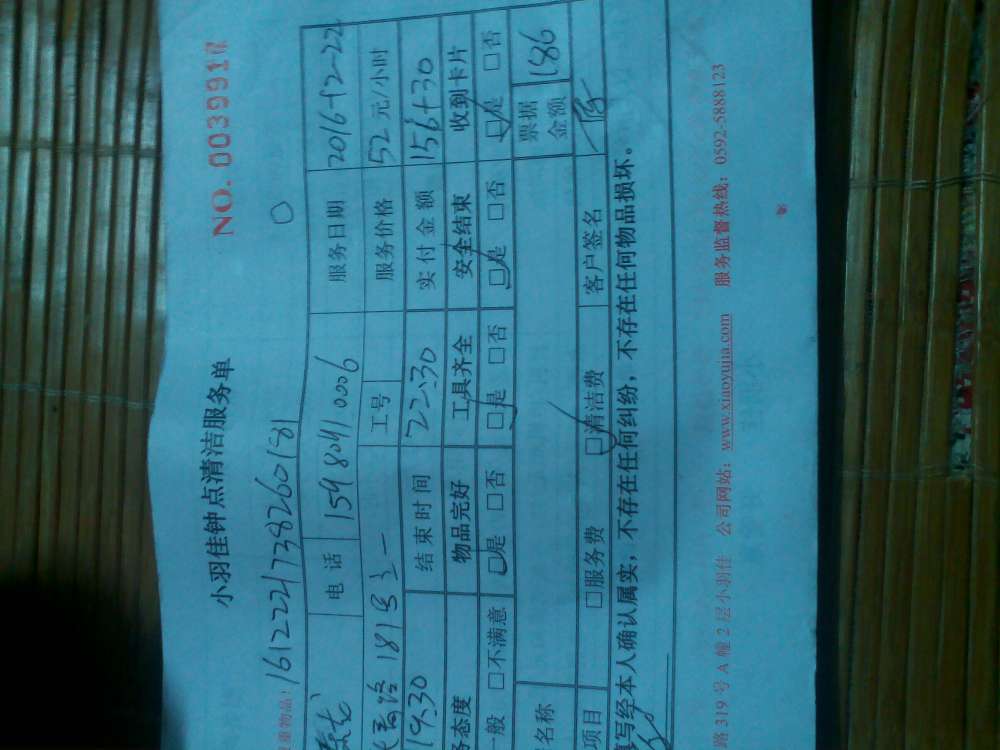 小羽佳钟点清洁服务单 NO. 0039918
重物品： 161222473826018
电话 15980410006 服务日期 2016-12-22
181号 工号 服务价格 52元/小时
19.30 结束时间 22:30 实付金额 156+30
务态度 物品完好 工具齐全 安全结束 收到卡片
一般 □不满意 □是 □否 □是 □否 □是 □否 □是 □否
名称 票据金额 186
项目 □服务费 □清洁费 客户签名
填写经本人确认属实，不存在任何纠纷，不存在任何物品损坏。
路319号A幢2层小羽佳 公司网站：www.xiaoyujia.com 服务监督热线：0592-5888123